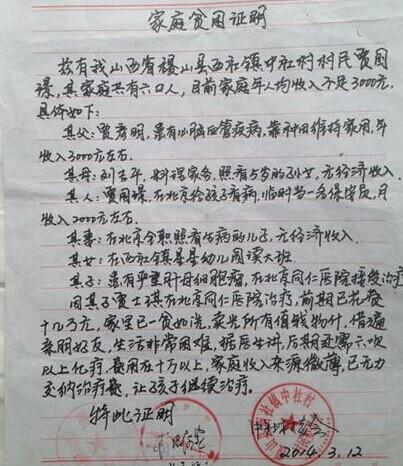 家庭贫困证明
兹有我山西省稷山县西社镇中社村村民贾国
璟,其家庭共有六口人,目前家庭年人均收入不足3000元,
具体如下:
其父:贾彦明,患有心脑血管疾病,靠种田维持家用,年
收入3000元左右.
其母:刘吉平,料理家务,照看5岁的孙女,无经济收入.
其人:贾国璟,在北京给孩子看病,临时当一名保安员,月
收入2000元左右.
其妻:在北京全职照看生病的儿子,无经济收入.
其女:在西社镇 幼儿园读大班
其子:患有严重肝母细胞瘤,在北京同仁医院接受治疗
因其子贾士琪在北京同仁医院治疗,前期已花费
十几万元,家里已一贫如洗,卖光所有值钱物什,借遍
亲朋好友,生活非常困难,据医生讲,后期还需六次
以上化疗,费用在十万以上,家庭收入来源微薄,已无力
交纳治疗费,让孩子继续治疗.
特此证明
镇中社村
2014.3.12